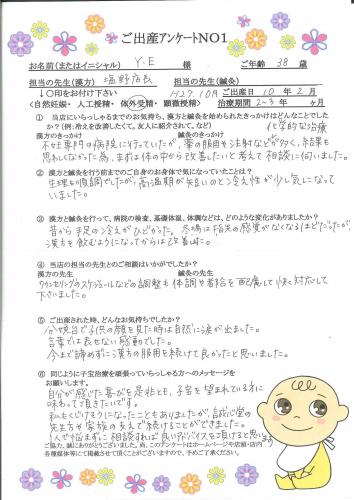 ご出産アンケートNO1
お名前(またはイニシャル) Y.E 様 ご年齢 38 歳
担当の先生(漢方) 塩野店長 担当の先生(鍼灸)
↓○印をお付け下さい H27.10月 ご出産日 10年2月
<自然妊娠・人工授精・体外受精・顕微授精> 治療期間 2~3年 ヶ月
① 当店にいらっしゃるまでのお気持ち、漢方と鍼灸を始められたきっかけはどんなことでしたか?(例:冷えを改善したくて。友人に紹介されて、など)
漢方のきっかけ 鍼灸のきっかけ 化学的な治療
不妊専門の病院に行っていたが、薬の服用や注射などが多く、結果も
思わしくなかった為、まずは体の中から改善したいと考えて相談に伺いました。
② 漢方と鍼灸を行う前までのご自身のお身体で気になっていたことは?
生理も順調でしたが、高温期が短いのと冷え性が少し気になって
いました。
③ 漢方と鍼灸を行って、病院の検査、基礎体温、体調などは、どのような変化がありましたか?
昔から手足の冷えがひどかった。冬場は指先の感覚がなくなるほどだったが、
漢方を飲むようになってからは改善した。
④ 当店の担当の先生とのご相談はいかがでしたか?
漢方の先生 鍼灸の先生
カウンセリングのスケジュールなどの調整も体調や都合を配慮して快く対応して
下さいました。
⑤ ご出産された時、どんなお気持ちでしたか?
分娩台で子供の顔を見た時は自然に涙が出ました。
言葉では表せない感動でした。
今まで諦めずに漢方の服用を続けて良かったと思いました。
⑥ 同じように子宝治療を頑張っていらっしゃる方へのメッセージを
お願いします。
自分が感じた喜びを是非とも、子宝を望まれている方に
味わって頂きたいです。
私もくじけそうになったこともありましたが、誠心堂の
先生方や家族の支えで続けることができました。
1人で悩まずに相談すれば良いアドバイスを頂けると思います。
ご協力、誠にありがとうございました。尚、このアンケートはホームページや店頭・店内
各種媒体等にて掲載させて頂くことがございますので、予めご了承ください。